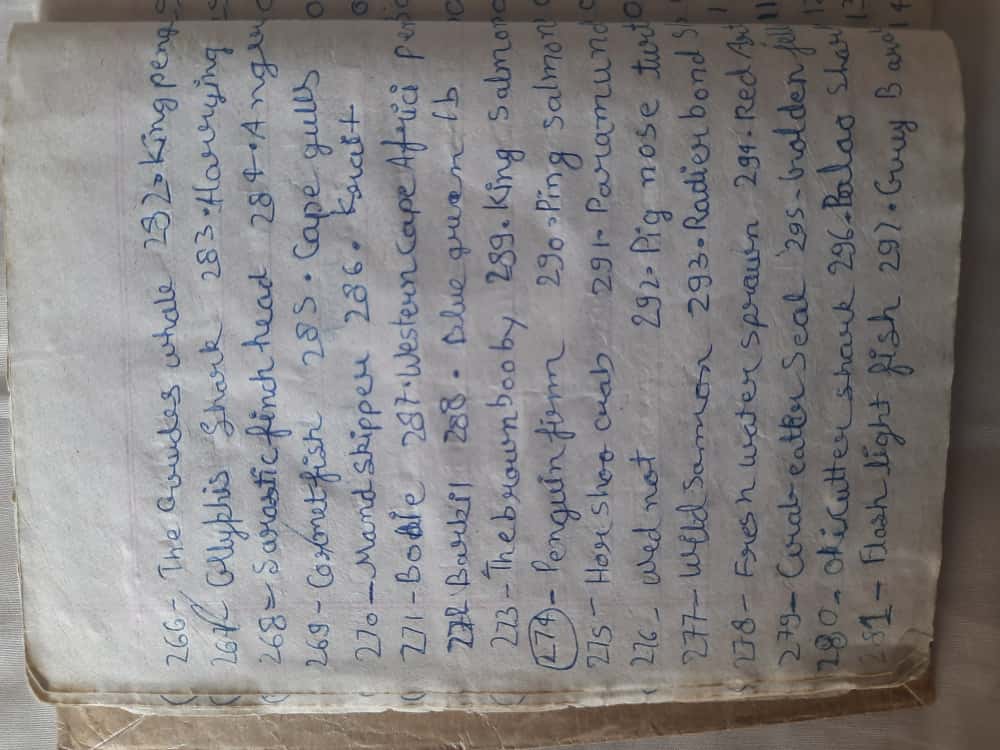 266- The Cuvides whale 282. King peng
267 Glyphis Shark 283. Harrying
268- Sarastic finch head 284. Angul
269- Coxmetfish 285. Cape gulls
270- Mandskipper 286. Krait
271- Bobie 287. Western Cape Africi peng
272 Barbil 288. Blue green lb
273- The brown booby 289. King Salmon
274- Penguin firm 290. Ping salmon
275- Horishoo crab 291. Paramund
276- wed not 292. Pig nose turt
277- Wild Samon 293. Radier bond
278- Fresh water sprawn 294. Red
279- Crab-eatter Seal 295. Golden
280- Okicutter shark 296. Palao Shar
281- Flash light fish 297. Guy